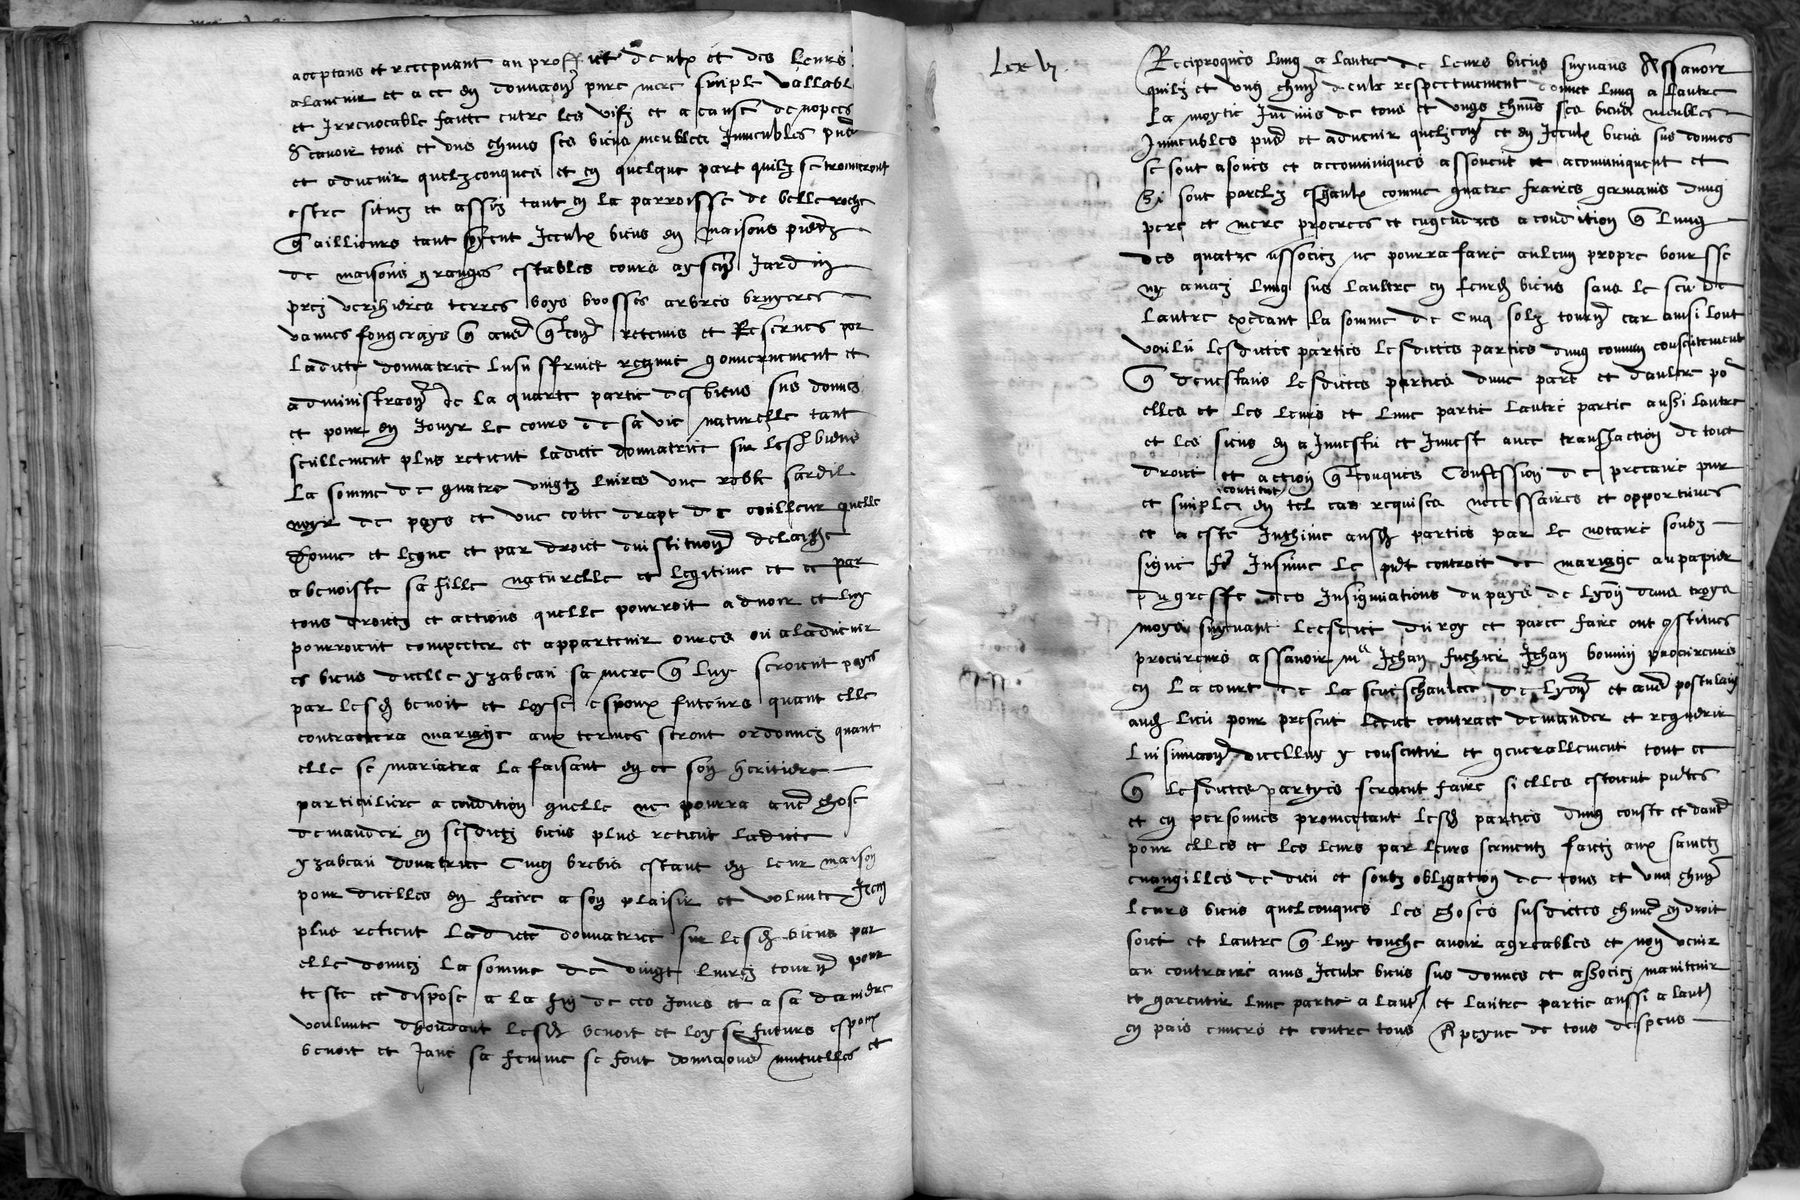 acceptans et recepvant au proffict d'eulx et des leurs
a ladvenir et a ce en donnaon pure mere simple vallabl
et irrevocable faicte entre les vifz et a cause de nopces
Scavoir tous et ungs chuns ses biens meubles immeubles pns
et advenir quelzconques et en quelque part quilz se trouveront
estre situez et assiz tant en la parroisse de belleroche
q ailleurs tant soyent iceulx biens en maisons
de maisons granges estables cours aysem jardin
prez vercheres terres boys brosses arbres bruyeres
vannes fougerays q aues retenus et reserves por
ladicte donnatrice lusuffruict regime gouvernement et
administraon de la quarte partie des biens sus donnes
et pour en jouyr le cours de sa vie naturelle tant
seullement plus retient ladicte donnatrice sur lesd biens
la somme de quatre vingtz livres une robbe
noyr de pays et une cotte drapt de coulleur quelle
donne et legue et par droict dinstituon delaisse
a benoiste sa fille naturelle et legitime et ce par
tous droictz et actions quelle pourroit advoir et luy
pourroient competer et appartenir ores ou a ladvenir
es biens dicelle yzabeau sa mere q luy seroient payes
par lesd benoit et loyse espoux futeurs quant elle
contractera mariaige aux termes seront ordonnez quant
elle se mariera la faisant en ce son heritiere
particuliere a condition quelle ne pourra aue chose
demander en sesdictz biens plus retient ladicte
yzabeau donatrice cinq brebis estant en leur maison
pour dicelles en faire a son plaisir et volunte Item
plus retient ladicte donnatrice sur lesd biens par
elle donnez la somme de vingt livres tourn pour
teste et dispose a la fin de ces jours et a sa derniere
voulunte lesd benoit et loyse futeurs espoux
benoit et jane sa femme se font donnaons mutuelles et
Lxx vj
Reciproques lung a lautre de leurs biens suyvans Assavoir
quilz et ung chun deulx respectivement donnet lung a lautre
la moytie indivis de tous et ungs chuns ses biens meubles
immeubles pns et advenir quelzcon et en iceulx biens sus donnes
se sont asocies et accominiques associent et acominiquent et
si sont parelz eshaulx comme quatre freres germains dung
pere et mere procrees et engendres a condition q lung
des quatre associez ne pourra faire aulcun propre boursse
ny amaz lung sus laultre en leurs biens sans le sceu de
lautre exedant la somme de cinq solz tourn car ainsi lont
voulu lesdictes parties lesdictes parties dung commun consentement
q devestans lesdictes parties dune part et daultre po
elles et les leurs et lune partie lautre partie aussi lautre
et les siens en a investu et invest avec transsaction de tout
droict et action qconques confession de precaire pur
constitut
et simple en tel cas requises necessaires et opportunes
et a este inthime ausd parties par le notaire soubz
signe fe insinue le pnt contract de mariaige au papier
du greffe des insignuations du pays de lyon dans troys
moys suyvant leedict du roy et pare faire ont qstitues
procureurs assavoir me Jehan Jehan bonnin procureurs
en la court de la seneschaulcee de lyon et aues postulans
aud lieu pour presenter ledict contract demander et requerir
linsinuaon dicelluy y consentir et generallement tout ce
q lesdictes partyes seroient faire si elles estoient pntes
et en personnes promectant lesd parties dung coste et daut
pour elles et les leurs par leurs sermentz faictz aux sainctz
evangilles de dieu et soubz obligation de tous et ungs chuns
leurs biens quelconques les choses susdictes chune en droit
soict et lautre q luy touche avoir agreables et non venir
au contraire ains iceulx biens sus donnes et associez maintenir
et garentir lune partie a laut et lautre partie aussi a laut
en pais envers et contre tous A peyne de tous despens